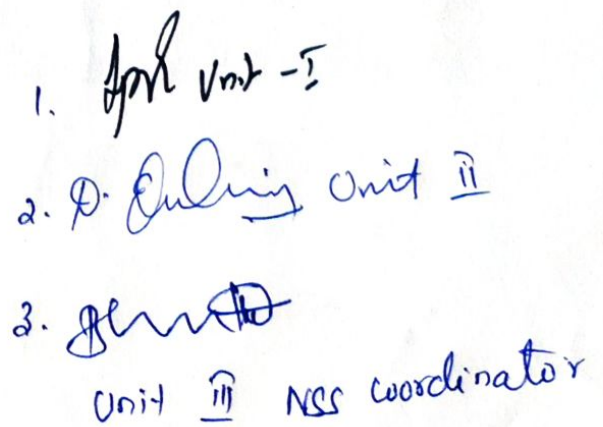 1. Unit - I
2. D. Unit II
3.
Unit III NSS Coordinator